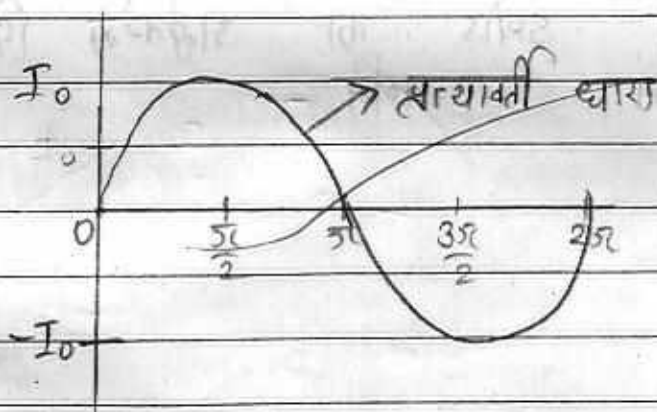 I₀
प्रत्यावर्ती धारा
0 π/2 π 3π/2 2π
-I₀